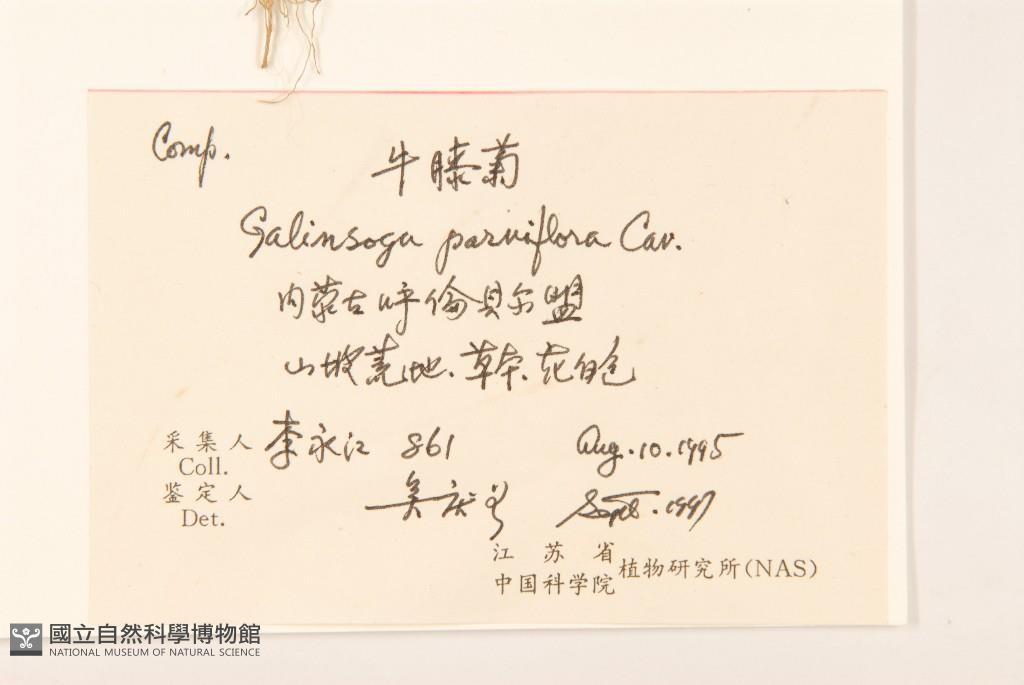 Comp.
牛膝菊
Galinsoga parviflora Cav.
内蒙古呼倫貝尔盟
山坡荒地、草本、花白色
采集人 李永江 861 Aug.10.1995
Coll.
鉴定人 Sept.1997
Det.
江苏省
中国科学院 植物研究所(NAS)
國立自然科學博物館
NATIONAL MUSEUM OF NATURAL SCIENCE